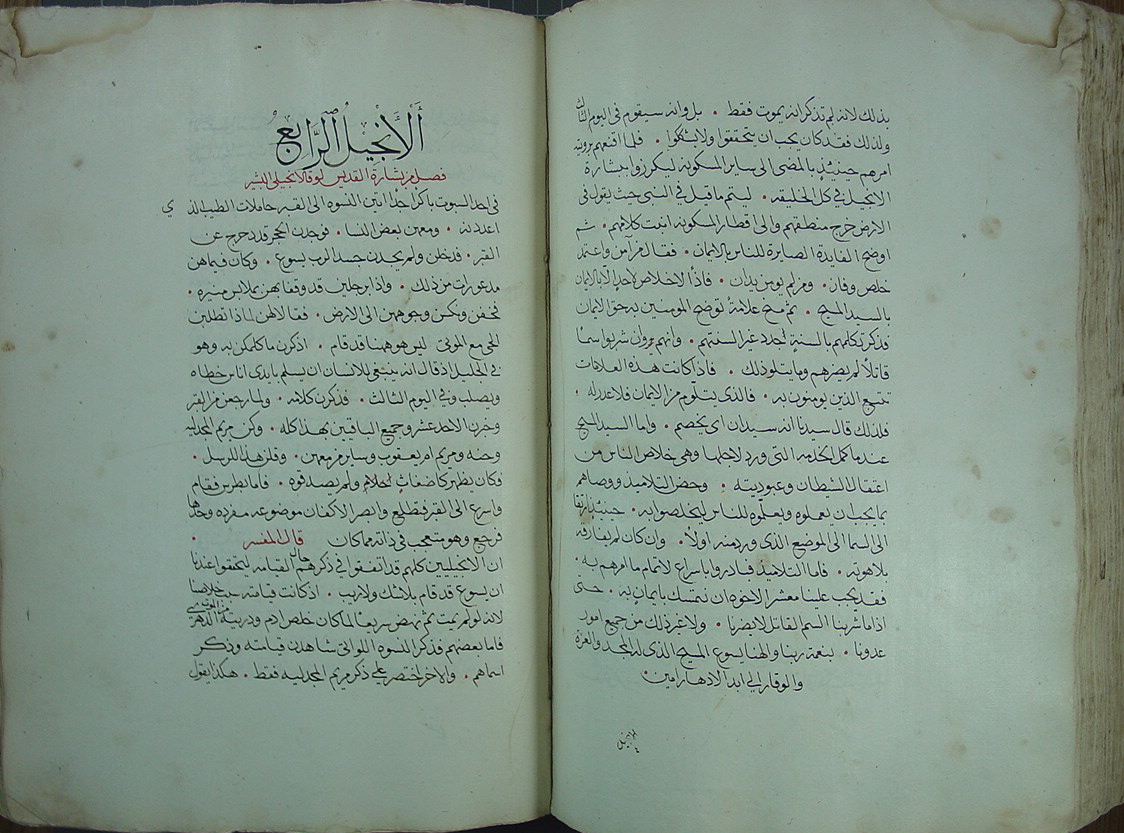 بذلك لانه لم تذكر انه يموت فقط . بل وانه سيقوم في اليوم الثالث
ولذلك فقد كان يجب ان يتحققوا ولا يشكوا . فلما اقنعهم برويته
امرهم حينيذٍ بالمضى الى ساير المسكونه ليكرزوا ببشارة
الانجيل في كل الخليقه . ليتم ما قيل في النبى حيث يقول في
الارض خرج منطقهم والى اقطار المسكونه انبت كلامهم . ثم
اوضح الفايدة الصايرة للناس بالايمان . فقال من آمن واعتمد
خلص وفان . ومن لم يومن يدان . فاذًا لا خلاص لاحد الا بالايمان
بالسيد المسيح . ثم منح علامة توضح المومنين به حق الايمان
فذكر تكلمهم بالسنةٍ جدد غير السنتهم . وانهم يرون شربوا سمًا
قاتلاً لم يضرهم وما يتلو ذلك . فاذا كانت هذه العلامات
تتبع الذين يومنون به . فالذى يتلوم من الايمان فلا عذر له .
فلذلك قال سيدنا انه سيدان اى يخصم . واما السيد المسيح
عند ما كمل الخدمه التى ورد لاجلها وهى خلاص الناس من
اعتقال الشيطان وعبوديته . وحض التلاميذ ووصاهم
بما يجب ان يعملوه ويعلموه للناس ليخلصوا به . حينيذٍ ارتقا
الى السما الى الموضع الذى ورد منه اولاً . وان كان لم يفارقه
بلاهوته . فاما التلاميذ فبادروا باسراع لاتمام ما امرهم به .
فقد يجب علينا معشر الاخوه ان نتمسك بايمان به . حتى
اذا ما شربنا السم القاتل لا يضرنا . ولا غير ذلك من جميع امور
عدونا . بنعمة ربنا والهنا يسوع المسيح الذى له المجد والعزة
والوقار الي ابد الادهار امين .
الانجيل
اَلْاَنْجِيلُ اَلرَّابِعُ
فصل من بشارة القديس لوقا الانجيلى البشير
في احد السبوت باكرًا جدا اتين النسوه الى القبر حاملات الطيب الذي
اعددنه . ومعهن بعض النسا . فوجدن الحجر قد دحرج عن
القبر . فدخلن ولم يجدن جسد الرب يسوع . وكان فيما هن
مذعورات من ذلك . واذا برجلين قد وقفا بهن بملابس منيره .
فخفن ونكسن وجوههن الى الارض . فقالا لهن لماذا تطلبن
الحى مع الموتى ليس هو ههنا قد قام . اذكرن ما كلمكن به وهو
في الجليل اذ قال انه ينبغى للانسان ان يسلم بايدى اناس خطاه
ويصلب وفي اليوم الثالث . فذكرن كلامه . ولما رجعن من القبر
وخبرن الاحد عشر وجميع الباقين بهذا كله . وكن مريم المجدليه
وحنه ومريم ام يعقوب وساير من معهن . وقلن هذا للرسل .
فكان يظهر كاضغاث احلام ولم يصدقوه . فاما بطرس فقام
واسرع الى القبر فتطلع وابصر الاكفان موضوعه مفرده وحدها
فرجع وهو متعجب في ذاته مما كان قال المفسر .
ان الانجيليين كلهم قد اتفقوا في ذكرهم حال القيامه ليحققوا عندنا
ان يسوع قد قام بلا شك ولا ريب . اذ كانت قيامته سبب خلاصنا
لانه لو لم يمت ثم نهض سريعًا لما كان خلص ادم وذريته من الموت الدهرى
فاما بعضهم فذكر النسوه اللواتى شاهدن قيامته وذكر
اسماهم . والاخر اختصر على ذكر مريم المجدليه فقط . هكذا يقول